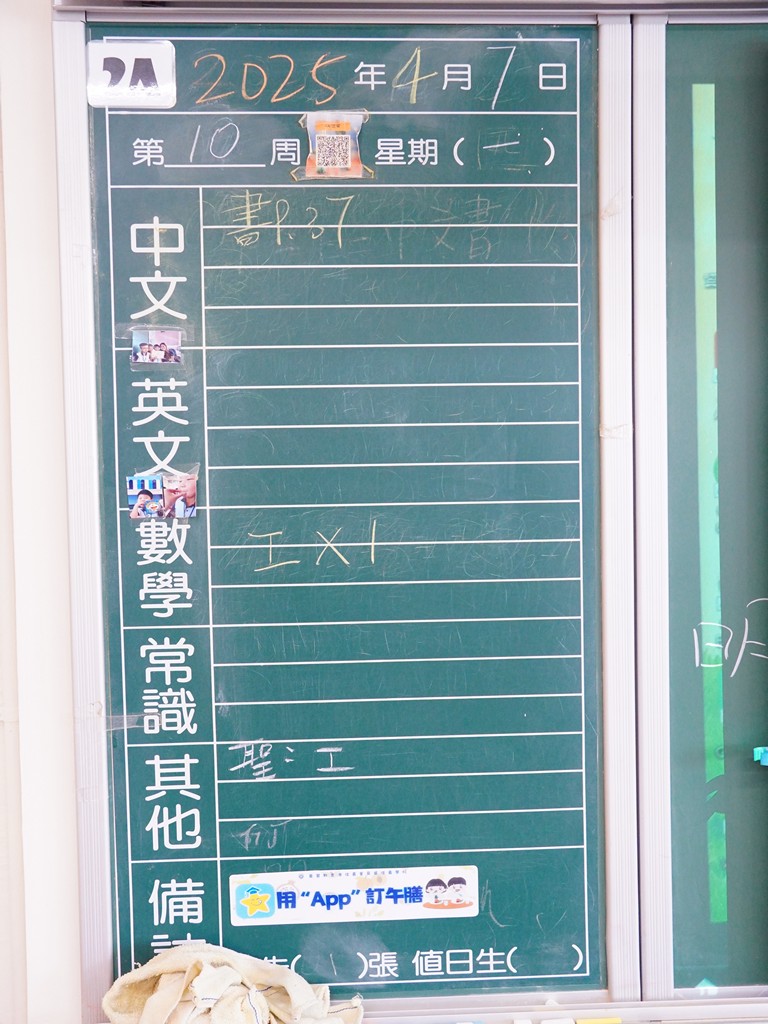 2A 2025年4月7日
第10周 星期( 一 )
中文 書P.37
英文
數學 工X1
常識
其他 聖:工
備
用“App”訂午膳
告( )張 值日生( )